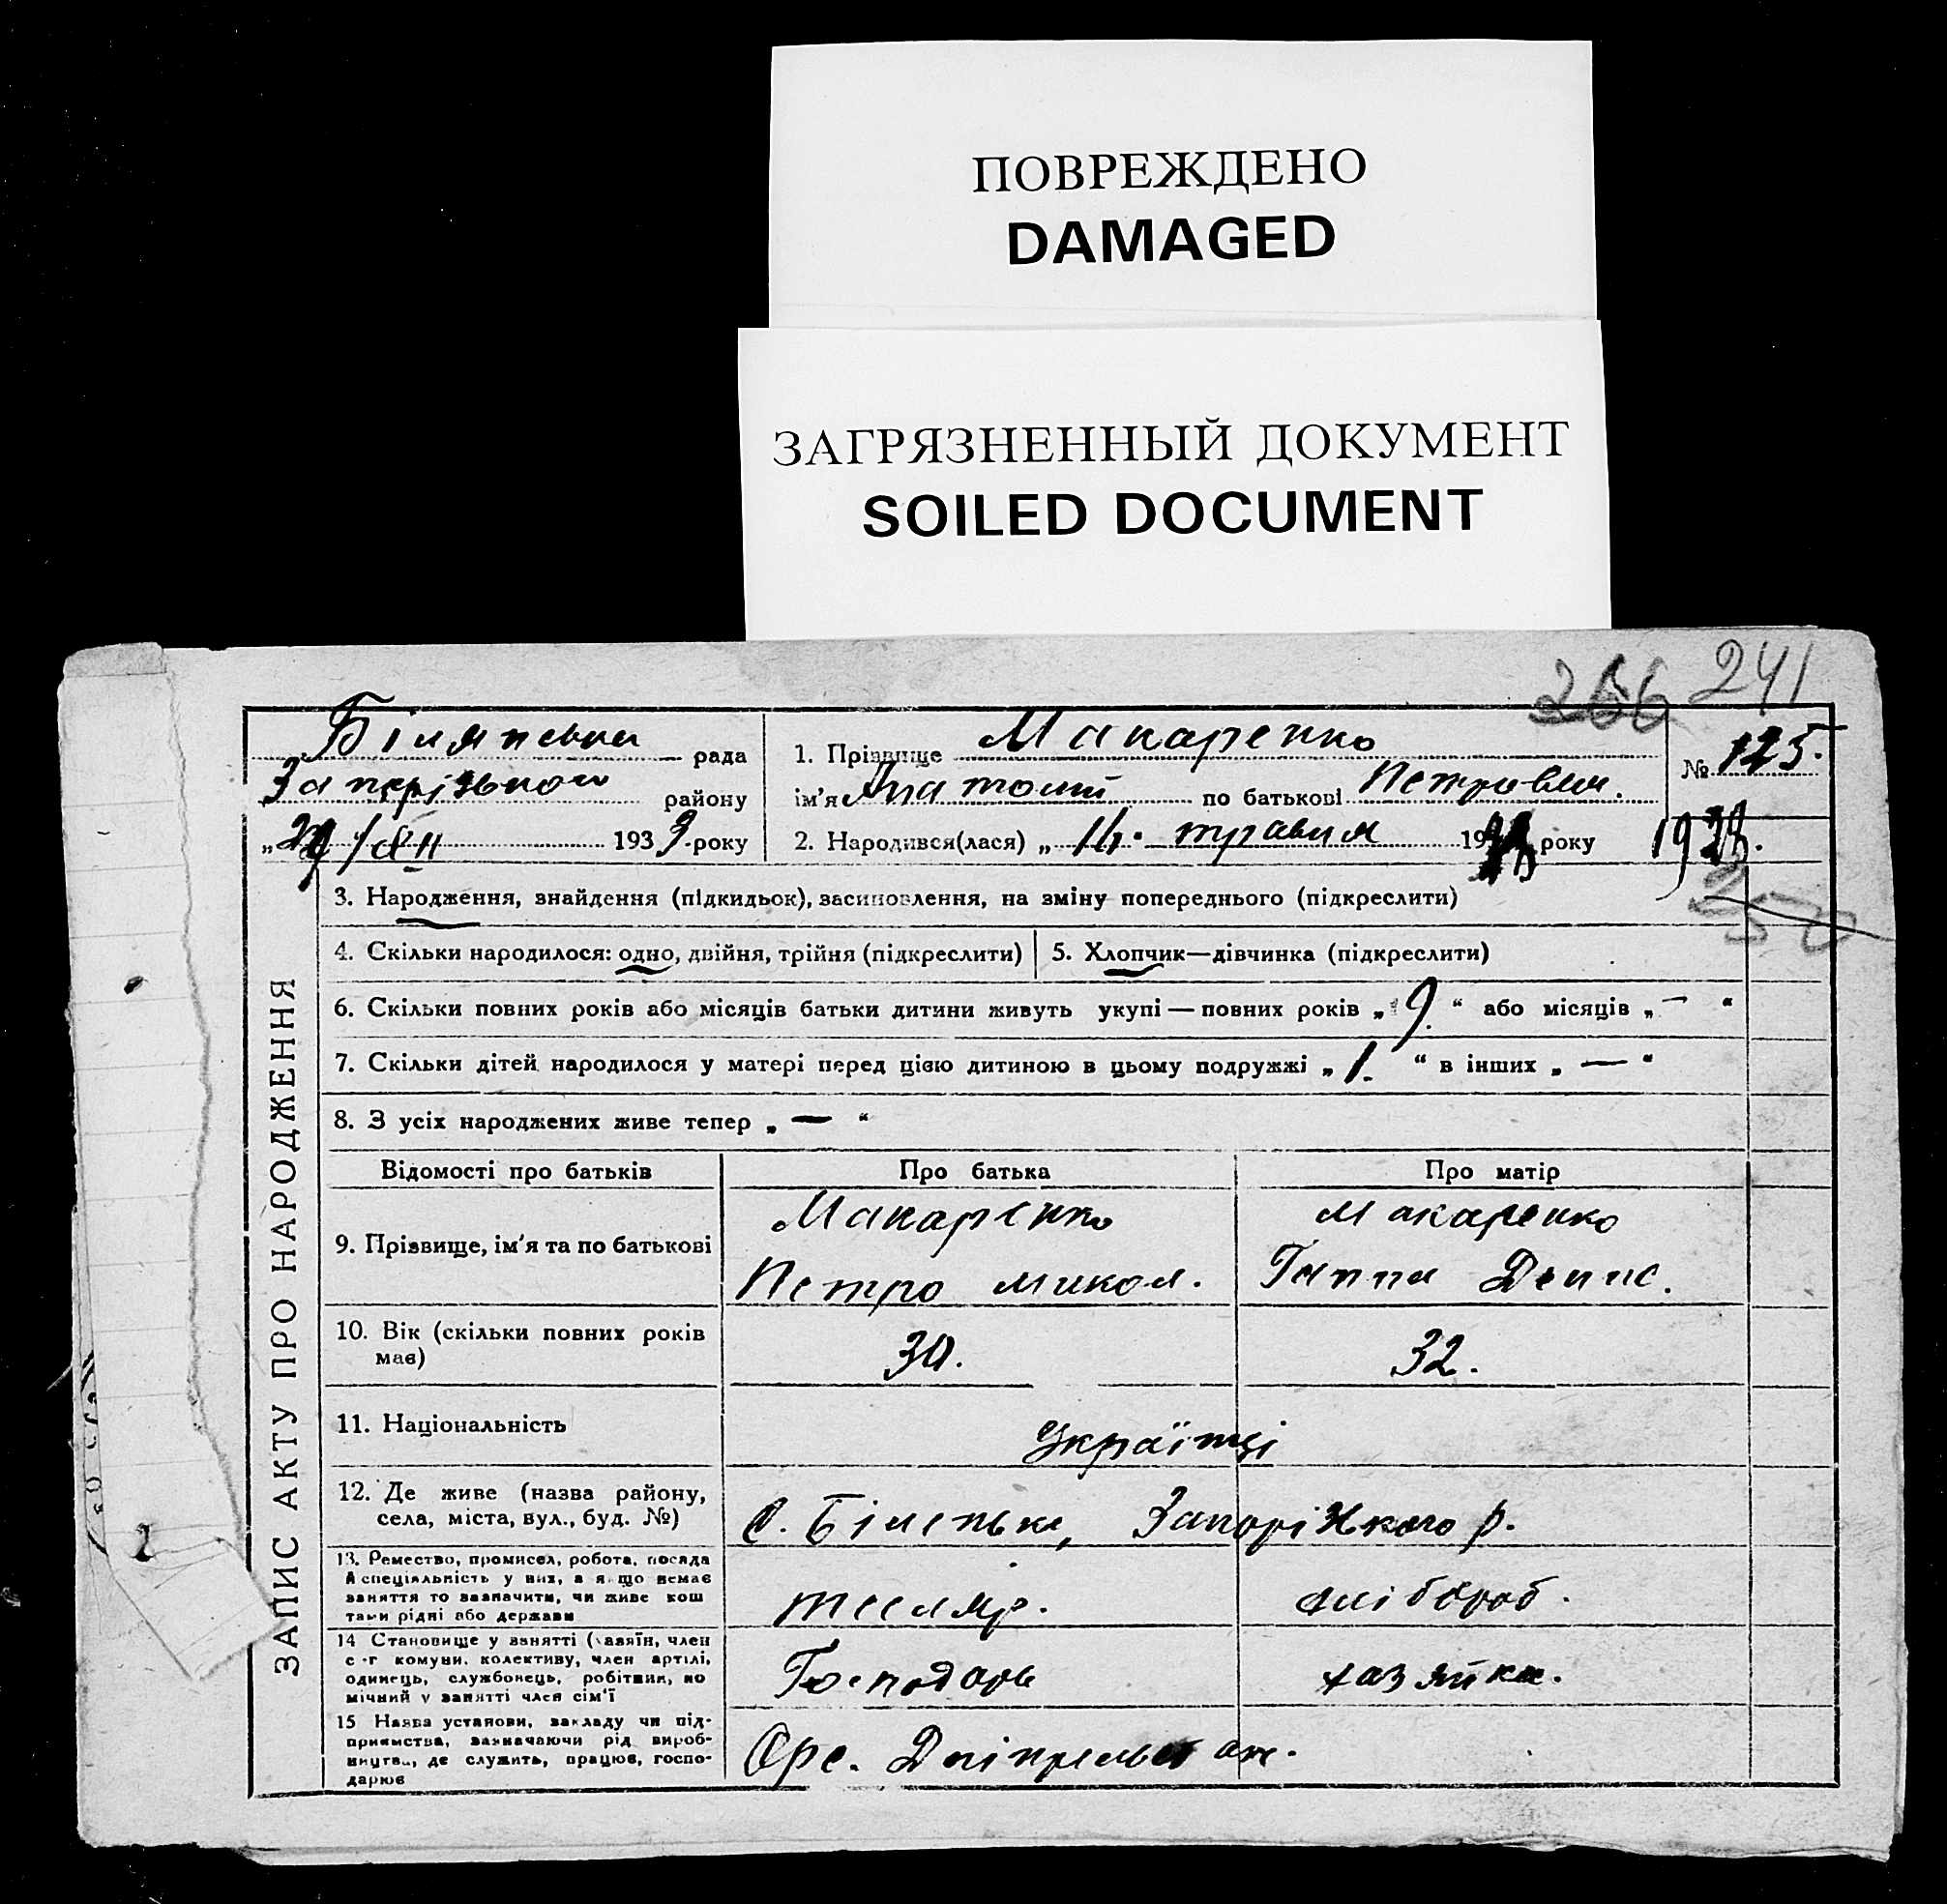 ПОВРЕЖДЕНО
DAMAGED
ЗАГРЯЗНЕННЫЙ ДОКУМЕНТ
SOILED DOCUMENT
266 241
рада
району
1939 року
1. Прізвище Макаренко
ім'я Анатолий по батькові
2. Народився(лася) „14. травня 19 року
№ 125.
ЗАПИС АКТУ ПРО НАРОДЖЕННЯ
3. Народження, знайдення (підкидьок), засиновлення, на зміну попереднього (підкреслити)
4. Скільки народилося: одно, двійня, трійня (підкреслити)
5. Хлопчик—дівчинка (підкреслити)
6. Скільки повних років або місяців батьки дитини живуть укупі — повних років „9.“ або місяців „—“
7. Скільки дітей народилося у матері перед цією дитиною в цьому подружжі „1.“ в інших „—“
8. З усіх народжених живе тепер „—“
Відомості про батьків
Про батька
Про матір
9. Прізвище, ім'я та по батькові
Макаренко
Петро Микол.
Макаренко
Ганна Денис.
10. Вік (скільки повних років
має)
30.
32.
11. Національність
Українці
12. Де живе (назва району,
села, міста, вул., буд. №)
с. Біленьке, Запоріжкого р.
13. Ремество, промисел, робота, посада
й спеціяльність у них, а якщо немає
заняття то зазначити, чи живе кош
тами рідні або держави
тесляр.
хлібороб.
14 Становище у занятті (хазяїн, член
с-г комуни, колективу, член артілі,
одинець, службовець, робітник, по
мічний у занятті член сім'ї
Господарь
хазяйка.
15 Назва установи, закладу чи під-
приємства, зазначаючи рід вироб-
ництва, де служить, працює, госпо-
дарює